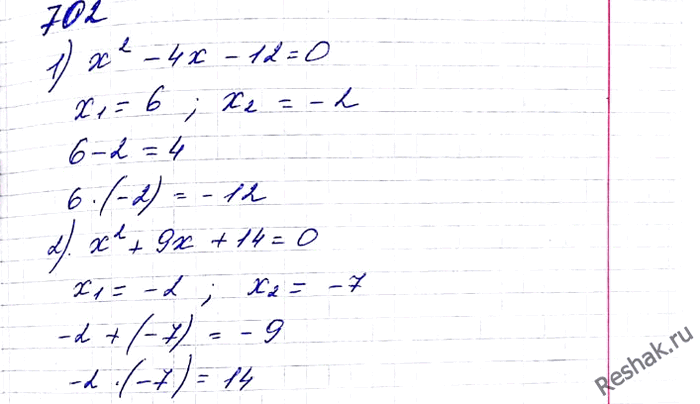 702
1) x² - 4x - 12 = 0
x₁ = 6 ; x₂ = -2
6 - 2 = 4
6 · (-2) = -12
2). x² + 9x + 14 = 0
x₁ = -2 ; x₂ = -7
-2 + (-7) = -9
-2 · (-7) = 14
Reshak.ru